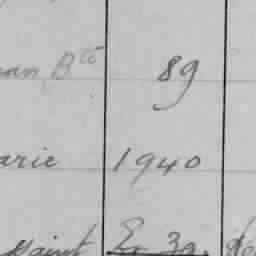 ean Bte 89
arie 1940
Maint